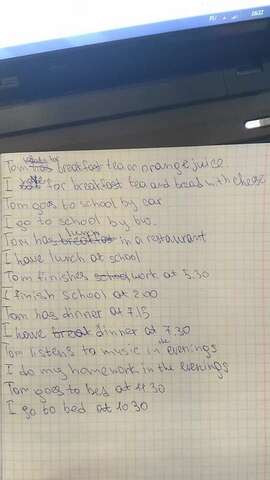 Tom has breakfast tea or orange juice
I for breakfast tea and bread with cheese
Tom goes to school by car
I go to school by bus.
Tom has lunch in a restaurant
I have lunch at school
Tom finishes work at 5.30
I finish school at 2.00
Tom has dinner at 7.15
I have dinner at 7.30
Tom listens to music in the evenings
I do my homework in the evenings
Tom goes to bed at 11.30
I go to bed at 10.30